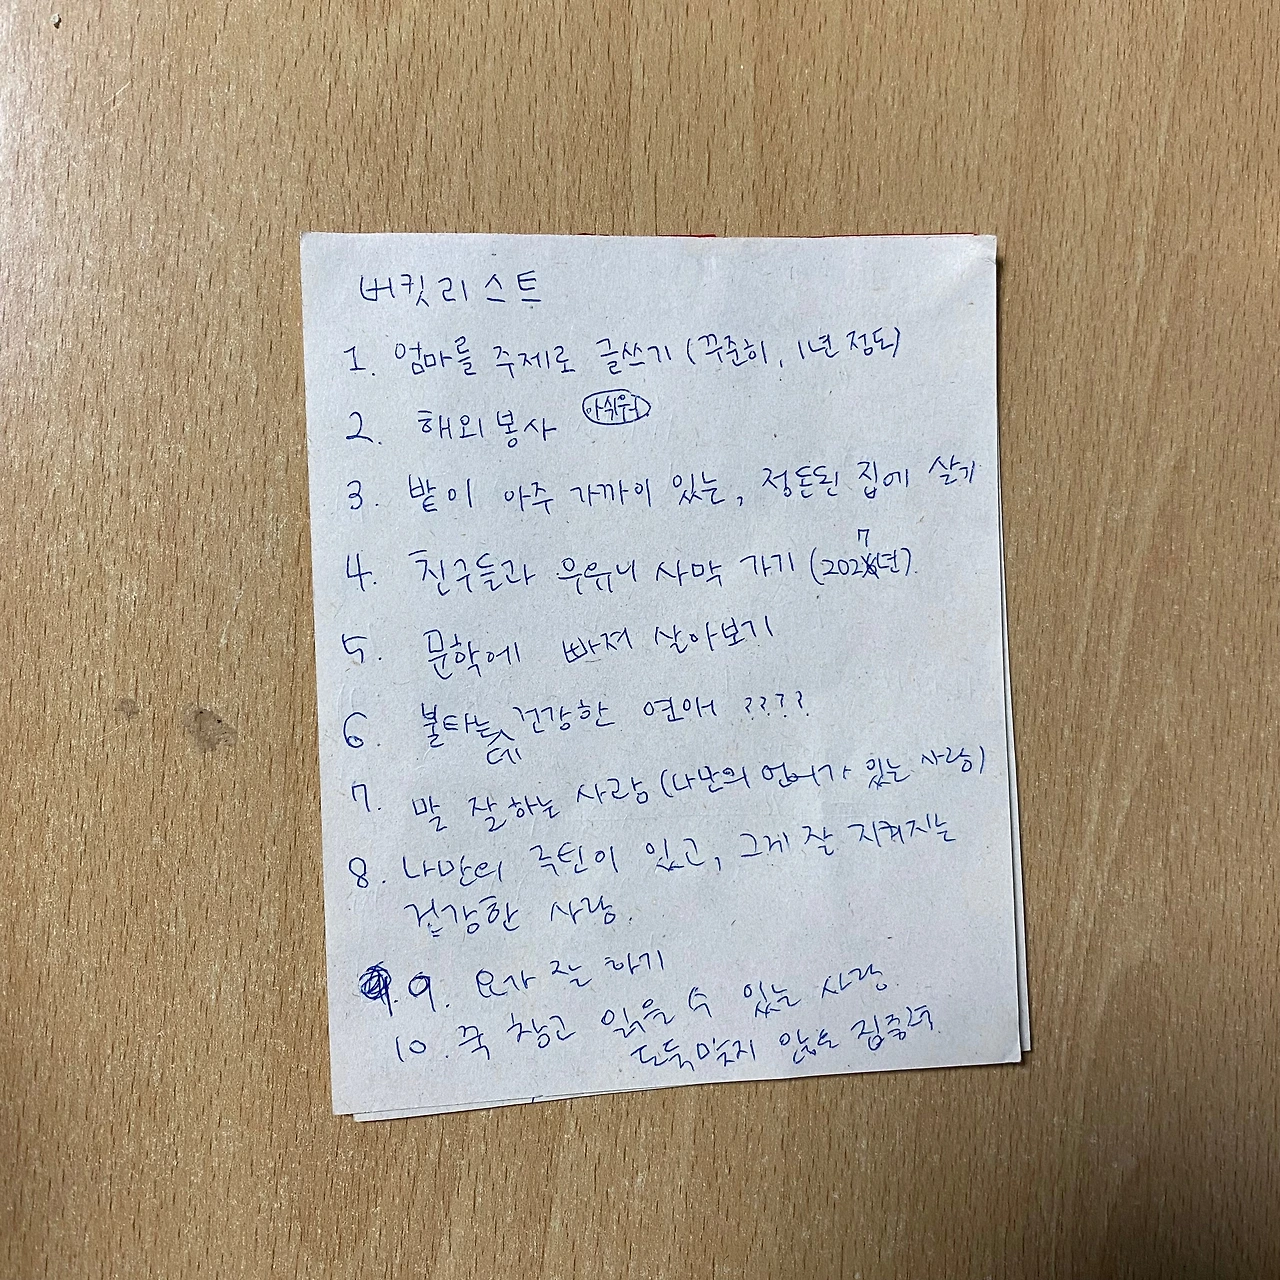 버킷리스트
1. 엄마를 주제로 글쓰기 (꾸준히, 1년 정도)
2. 해외봉사 아쉬워
3. 밭이 아주 가까이 있는, 정돈된 집에 살기
4. 친구들과 우유니 사막 가기 (2027년).
5. 문학에 빠져 살아보기
6. 불타는데 건강한 연애 ????
7. 말 잘하는 사람 (나만의 언어가 있는 사람)
8. 나만의 루틴이 있고, 그게 잘 지켜지는
건강한 사람.
9. 요가 잘 하기
10. 쭉 참고 읽을 수 있는 사람.
도둑맞지 않는 집중력.